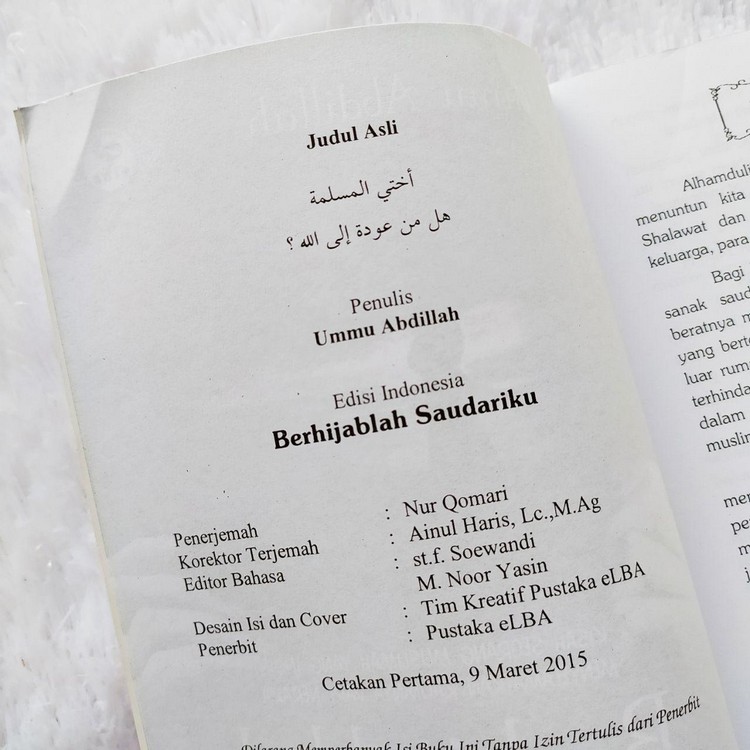 Judul Asli
أختي المسلمة
هل من عودة إلى الله ؟
Penulis
Ummu Abdillah
Edisi Indonesia
Berhijablah Saudariku
Penerjemah : Nur Qomari
Korektor Terjemah : Ainul Haris, Lc.,M.Ag
Editor Bahasa : st.f. Soewandi
M. Noor Yasin
Desain Isi dan Cover : Tim Kreatif Pustaka eLBA
Penerbit : Pustaka eLBA
Cetakan Pertama, 9 Maret 2015
Dilarang Memperbanyak Isi Buku Ini Tanpa Izin Tertulis dari Penerbit
menuntun kita
Shalawat dan
keluarga, para
Bagi
sanak
beratnya
yang
luar
terhinda
dalam
muslim